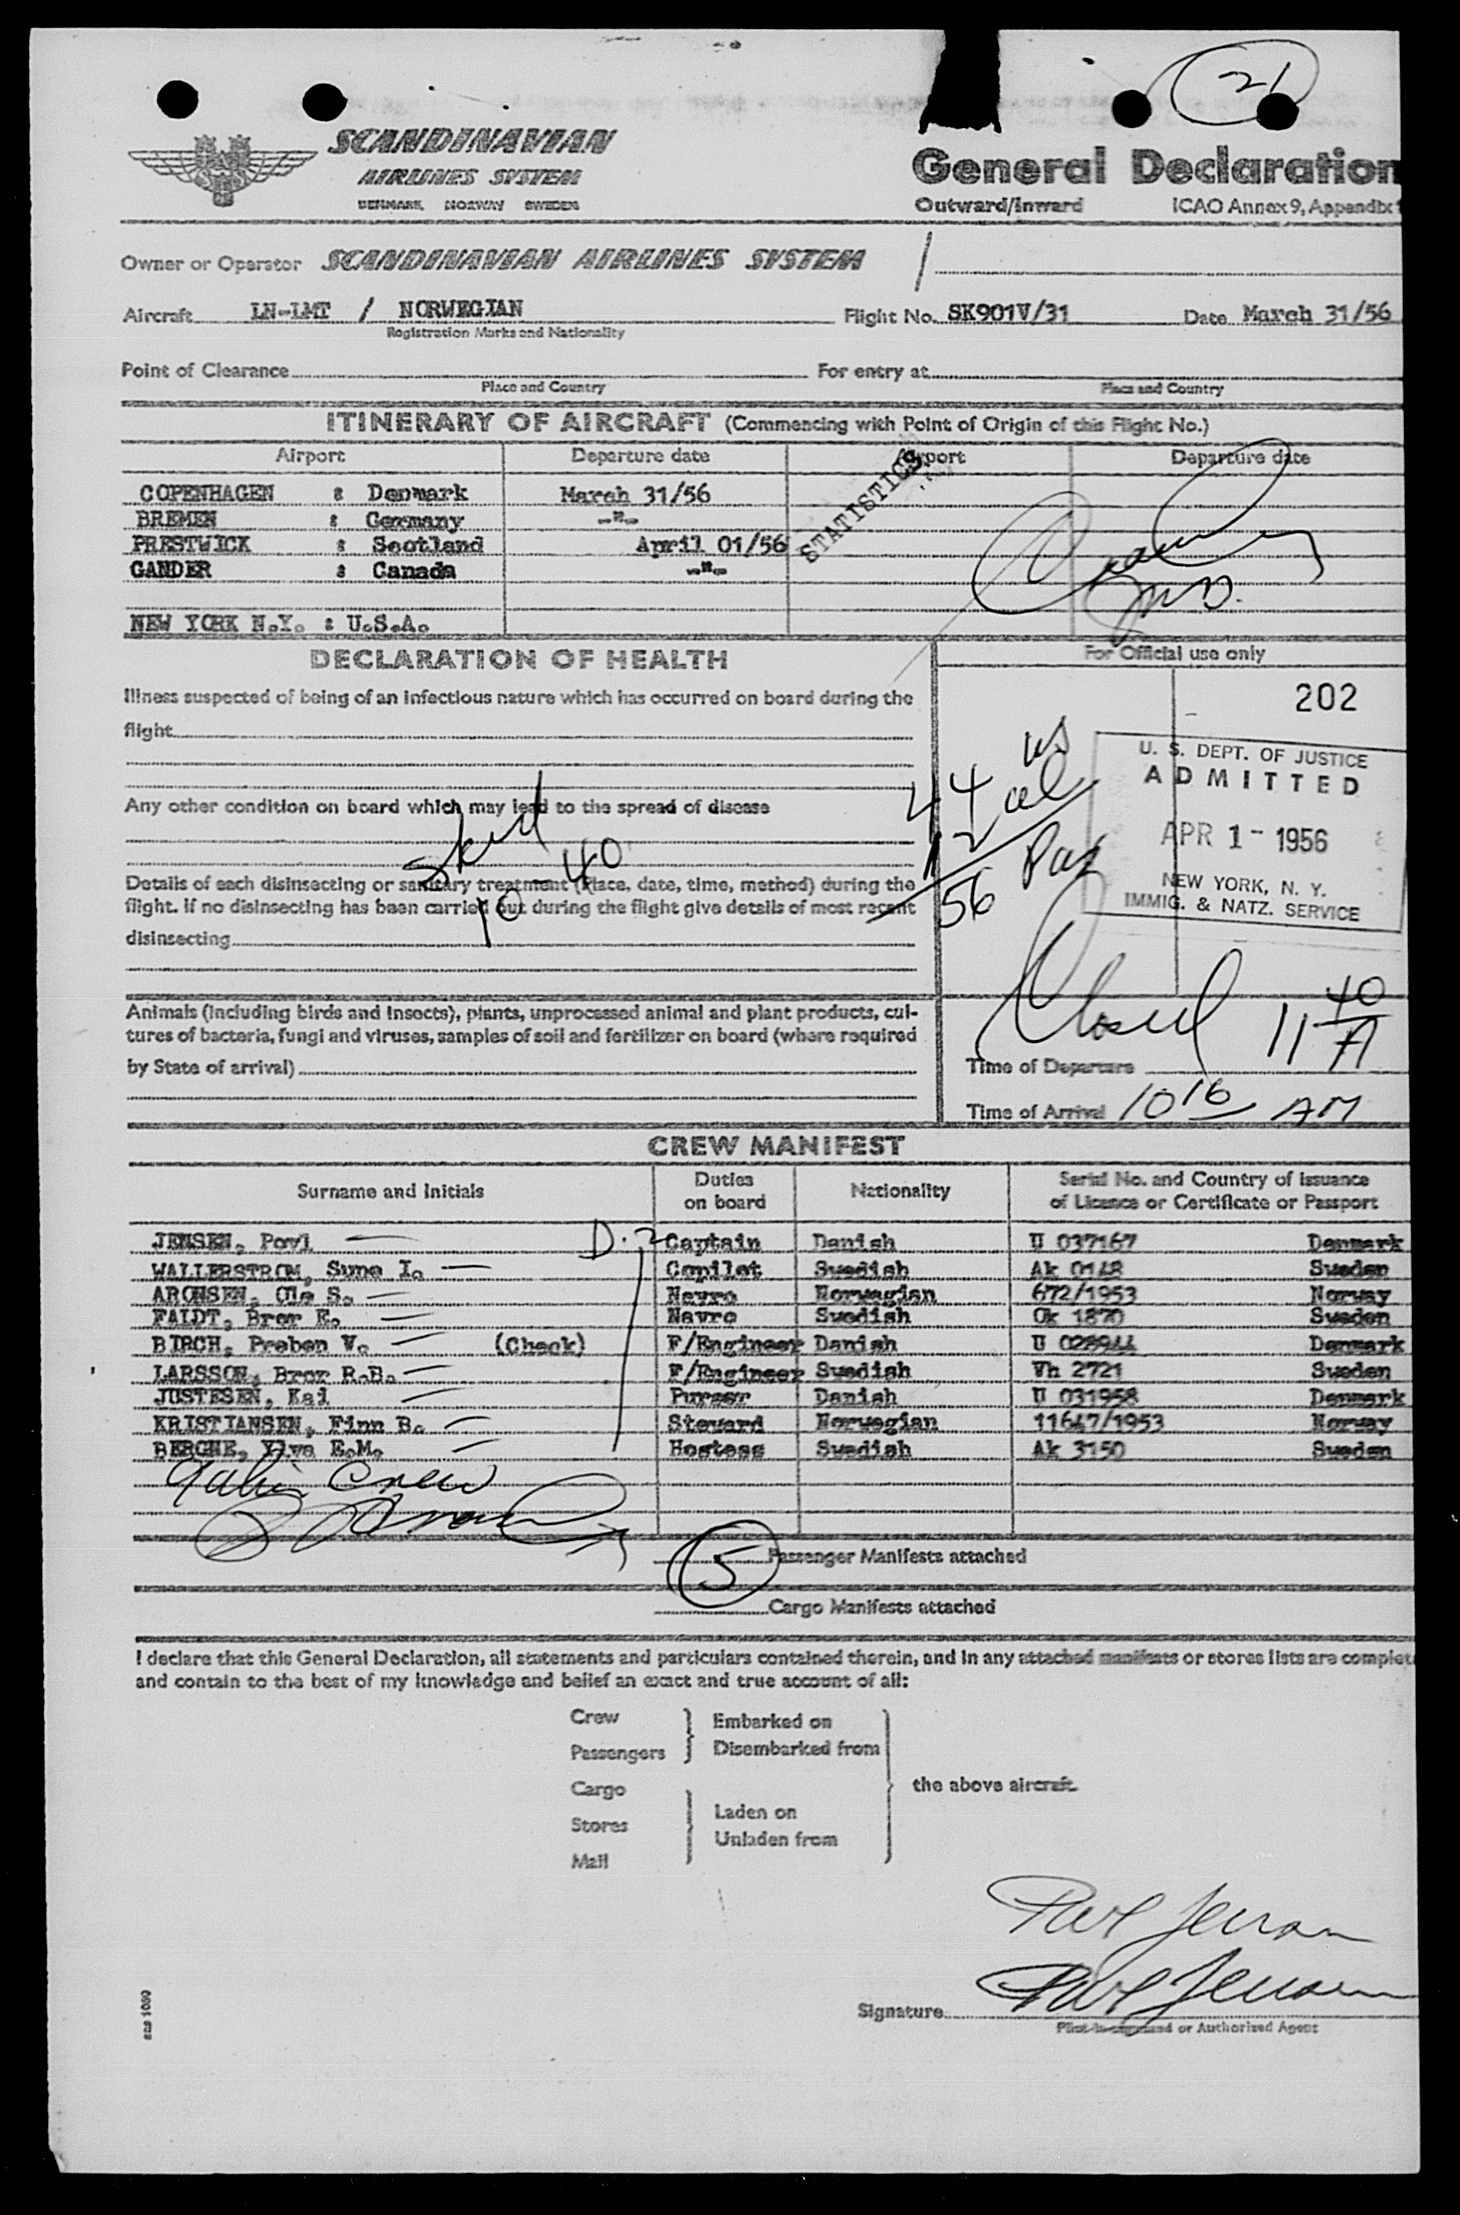 21
SCANDINAVIAN
AIRLINES SYSTEM
DENMARK NORWAY SWEDEN
General Declaration
Outward/Inward ICAO Annex 9, Appendix 1
Owner or Operator SCANDINAVIAN AIRLINES SYSTEM
Aircraft LN-LMT / NORWEGIAN Flight No. SK901V/31 Date March 31/56
Registration Marks and Nationality
Point of Clearance For entry at
Place and Country Place and Country
ITINERARY OF AIRCRAFT (Commencing with Point of Origin of this Flight No.)
Airport Departure date Airport Departure date
COPENHAGEN : Denmark March 31/56
BREMEN : Germany -"-
PRESTWICK : Scotland April 01/56
GANDER : Canada -"-
NEW YORK N.Y. : U.S.A.
STATISTICS
DECLARATION OF HEALTH
For Official use only
Illness suspected of being of an infectious nature which has occurred on board during the
flight
Any other condition on board which may lead to the spread of disease
10-40
Details of each disinsecting or sanitary treatment (place, date, time, method) during the
flight. If no disinsecting has been carried out during the flight give details of most recent
disinsecting
Animals (including birds and insects), plants, unprocessed animal and plant products, cul-
tures of bacteria, fungi and viruses, samples of soil and fertilizer on board (where required
by State of arrival)
202
44 us
12 al
56 Pax
U. S. DEPT. OF JUSTICE
ADMITTED
APR 1 - 1956
NEW YORK, N. Y.
IMMIG. & NATZ. SERVICE
Closed 11 40 A
Time of Departure
Time of Arrival 10 16 AM
CREW MANIFEST
Surname and Initials Duties on board Nationality Serial No. and Country of Issuance of Licence or Certificate or Passport
JENSEN, Povl D-2 Captain Danish U 037167 Denmark
WALLERSTROM, Sune I. Copilot Swedish Ak 0148 Sweden
ARONSEN, Ole S. Navro Norwegian 672/1953 Norway
FALDT, Bror E. Navro Swedish Ok 1870 Sweden
BIRCH, Preben V. (Check) F/Engineer Danish U 028944 Denmark
LARSSON, Bror R.B. F/Engineer Swedish Vh 2721 Sweden
JUSTESEN, Kai Purser Danish U 031958 Denmark
KRISTIANSEN, Finn B. Steward Norwegian 11647/1953 Norway
BERGNE, Ylva E.M. Hostess Swedish Ak 3150 Sweden
Crew
5 Passenger Manifests attached
Cargo Manifests attached
I declare that this General Declaration, all statements and particulars contained therein, and in any attached manifests or stores lists are complete
and contain to the best of my knowledge and belief an exact and true account of all:
Crew
Passengers
Embarked on
Disembarked from
Cargo
Stores
Mail
Laden on
Unladen from
the above aircraft.
Povl Jensen
Povl Jensen
Signature
Pilot-in-command or Authorized Agent
sas 1090